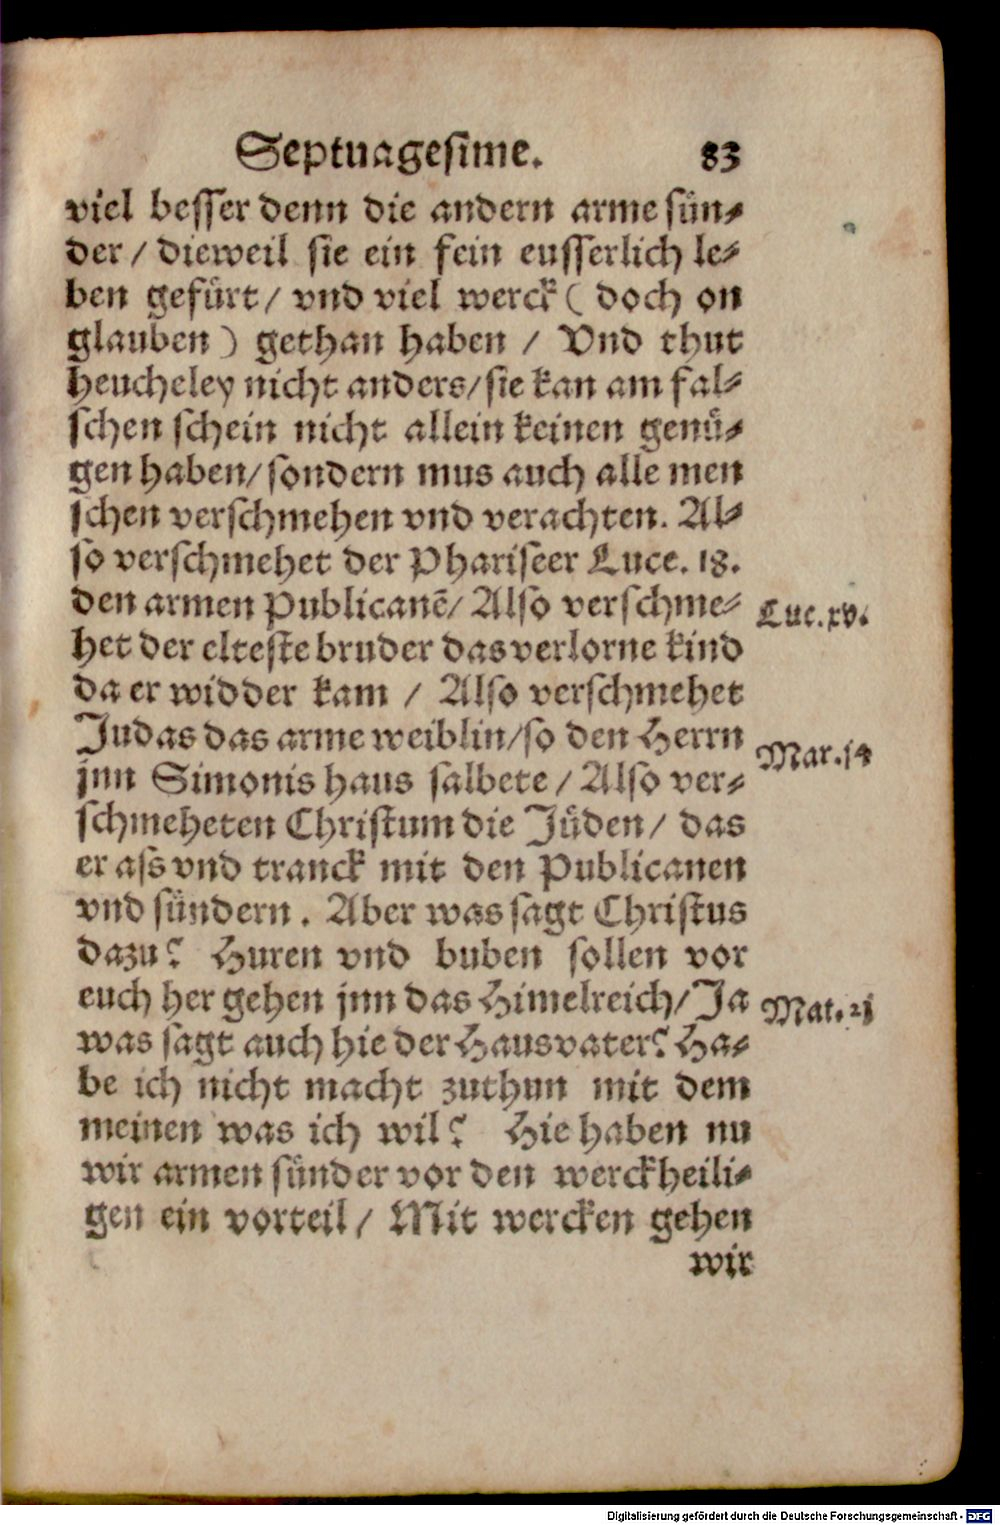 Septuagesime. 83
viel besser denn die andern arme sün⸗
der / dieweil sie ein fein eusserlich le⸗
ben gefürt / vnd viel werck ( doch on
glauben ) gethan haben / Vnd thut
heucheley nicht anders / sie kan am fal⸗
schen schein nicht allein keinen genü⸗
gen haben / sondern mus auch alle men
schen verschmehen vnd verachten. Al⸗
so verschmehet der Phariseer Luce. 18.
den armen Publicanē / Also verschme⸗
Luc. xv.
het der elteste bruder das verlorne kind
da er widder kam / Also verschmehet
Judas das arme weiblin / so den Herrn
Mar. 14
jnn Simonis haus salbete / Also ver⸗
schmeheten Christum die Jüden / das
er ass vnd tranck mit den Publicanen
vnd sündern. Aber was sagt Christus
dazu? Huren vnd buben sollen vor
euch her gehen jnn das Himelreich / Ja
Mat. 21
was sagt auch hie der Hausvater? Ha⸗
be ich nicht macht zuthun mit dem
meinen was ich wil? Hie haben nu
wir armen sünder vor den werckheili⸗
gen ein vorteil / Mit wercken gehen
wir
Digitalisierung gefördert durch die Deutsche Forschungsgemeinschaft - DFG